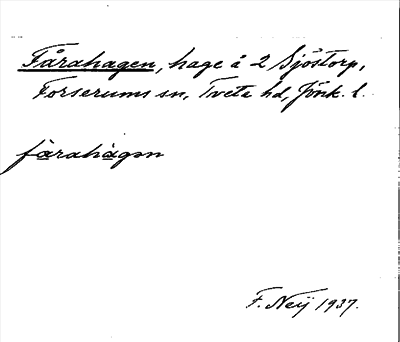 Fårahagen, hage å 2 Sjöstorp,
Forserums sn, Tveta hd, Jönk. l.
fårahàgən
F. Neij 1937.